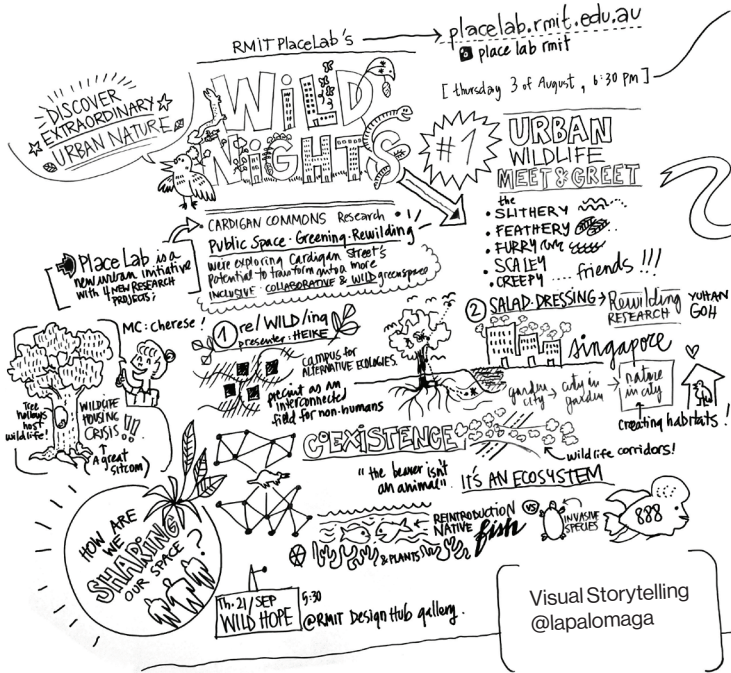 RMIT PLACELAB'S
placelab.rmit.edu.au
place lab rmit
[Thursday 3 of August, 6:30 pm]
DISCOVER
EXTRAORDINARY
URBAN NATURE
WILD
NIGHTS
#1
URBAN
WILDLIFE
MEET & GREET
the
• SLITHERY
• FEATHERY
• FURRY
• SCALEY
• CREEPY .... friends !!!
CARDIGAN COMMONS Research
Public Space · Greening · Rewilding
were exploring Cardigan Street's
Potential to transform into a more
INCLUSIVE · COLLABORATIVE & WILD greenspace
Place Lab is a
new urban initiative
with 4 NEW RESEARCH
PROJECTS;
MC: Cherese!
Tree
hollows
host
wildlife!
WILDLIFE
HOUSING
CRISIS!!!
(A great
sitcom)
1 re/WILD/ing
presenter: HEIKE
CAMPUS for
ALTERNATIVE ECOLOGIES.
precint as an
interconnected
field for non-humans
2 SALAD-DRESSING → Rewilding
RESEARCH
YUHAN
GOH
singapore
garden
city → city in
garden → nature
in city
creating habitats!
COEXISTENCE
wildlife corridors!
"the beaver isn't
an animal".
IT'S AN ECOSYSTEM
REINTRODUCTION
NATIVE fish
VS
INVASIVE
SPECIES
888
& PLANTS
HOW ARE
WE
SHARING
OUR SPACE?
Th. 21/SEP
WILD HOPE
5:30
@RMIT Design Hub gallery.
Visual Storytelling
@lapalomaga